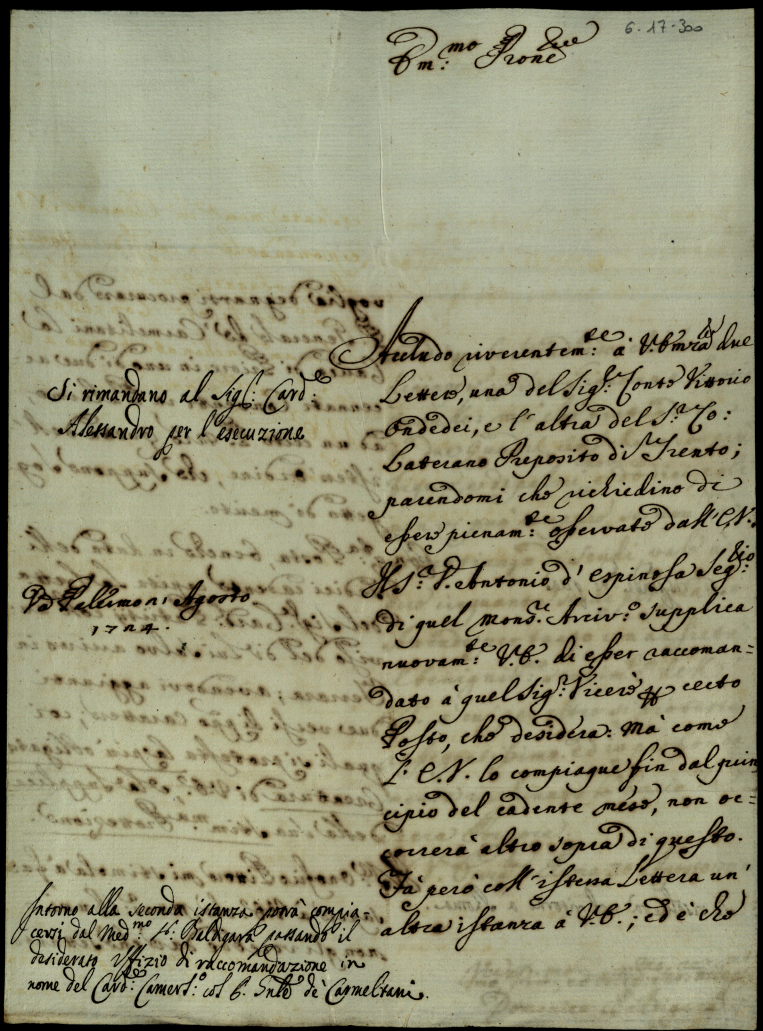 6-17-300
Em:mo Prone
Accludo riverentem:te à V. Emza due
Lettere, una del Sig:r Conte Vittorio
Ondedei, e l'altra del S:r Co:
Laterano Preposito di Trento;
parendomi che richiedino di
esser pienam:te osservate dall'E.V.
Il S:r D. Antonio d'Espinosa Seg:rio
di quel Mons:r Arciv:o supplica
nuovam:te V.E. di esser raccoman=
dato à quel Sig:r Vicerè certo
Posto, che desidera: Mà come
l'E.V. lo compiaque fin dal prin=
cipio del cadente mese, non oc=
correrà altro sopra di questo.
Fà però coll'istessa Lettera un'
altra istanza à V.E.; ed è che
Si rimandano al Sig:r Card:le
Alessandro per l'esecuzione
Palermo Agosto
1724.
Intorno alla seconda istanza potrà compia=
cersi dal Med:mo S:r passando il
desiderato Uffizio di raccomandazione in
nome del Card:le Camerl:o col P. Gnle de' Carmelitani.